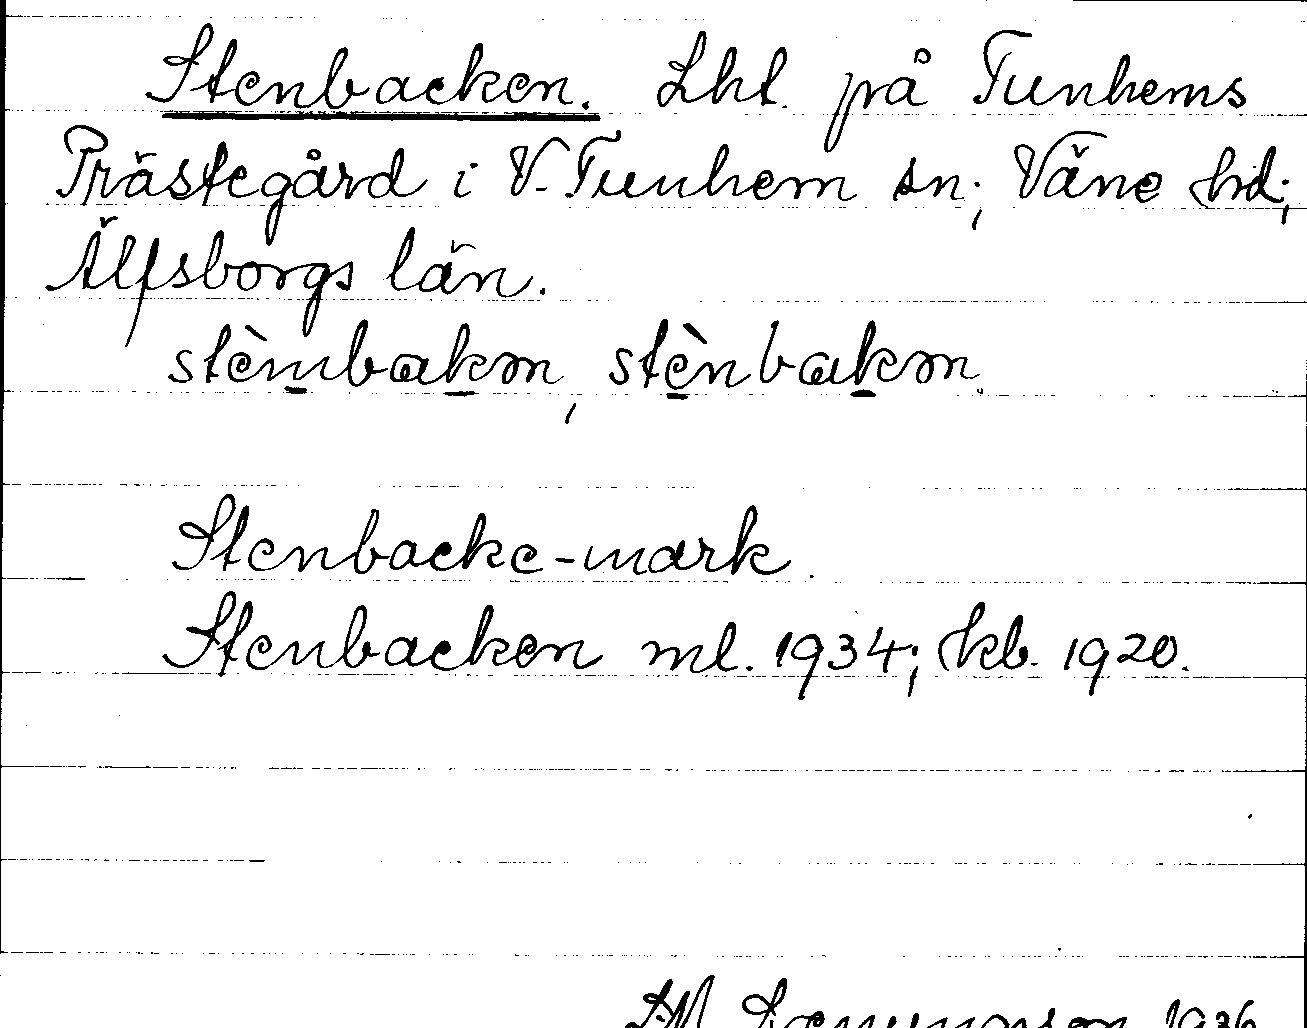 Stenbacken. Lht. på Tunhems
Prästegård i V. Tunhem sn; Väne hd;
Älfsborgs län.
stèmbakɷn, stènbakɷn.
Stenbacke-mark.
Stenbacken ml. 1934; kb. 1920.
1936